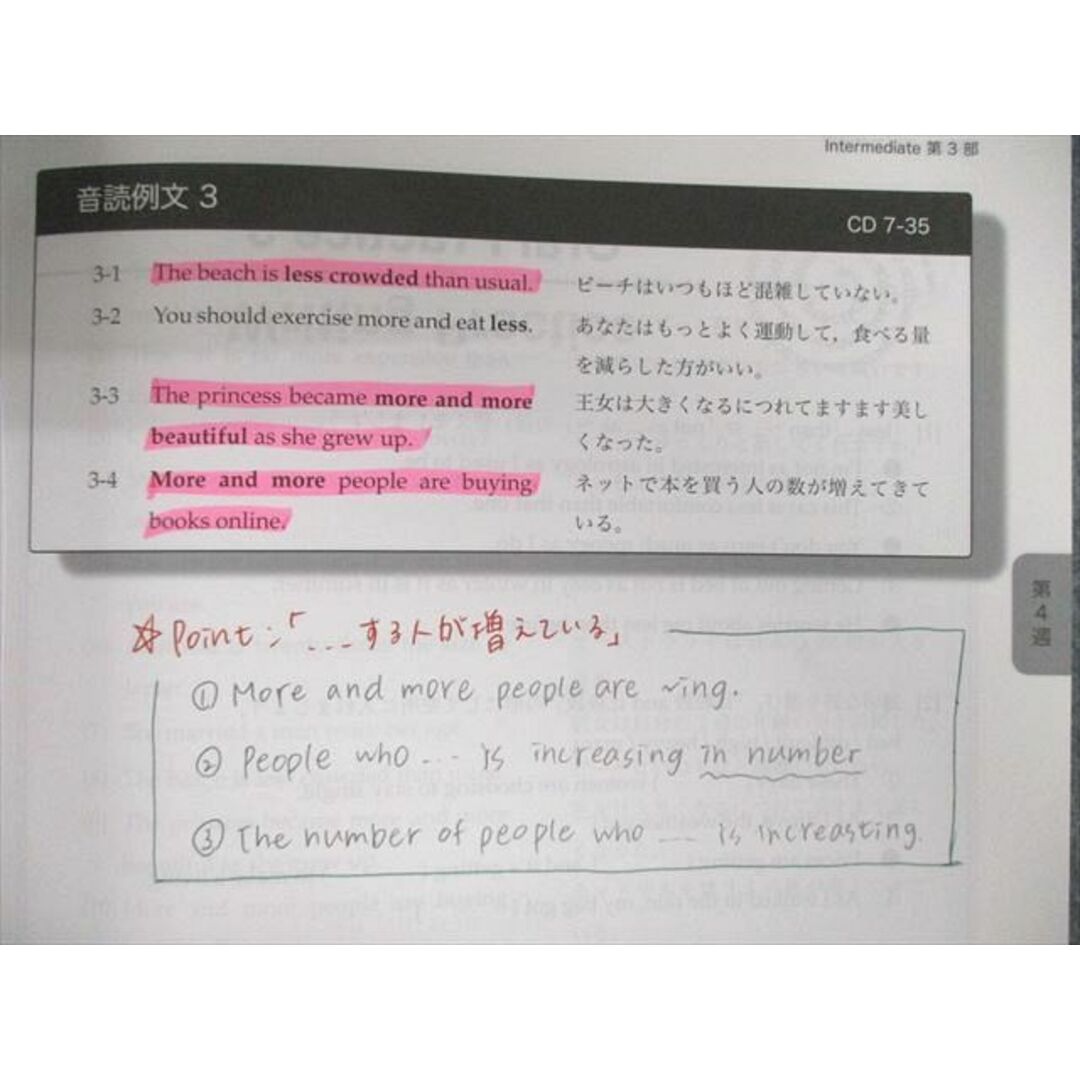 Intermediate 第3部
音読例文 3
CD 7-35
3-1 The beach is less crowded than usual. ビーチはいつもほど混雑していない。
3-2 You should exercise more and eat less. あなたはもっとよく運動して，食べる量
を減らした方がいい。
3-3 The princess became more and more 王女は大きくなるにつれてますます美し
beautiful as she grew up. くなった。
3-4 More and more people are buying ネットで本を買う人の数が増えてきて
books online. いる。
第4週
☆ Point:「...する人が増えている」
① More and more people are ~ing.
② People who ... is increasing in number
③ The number of people who ... is increasting.